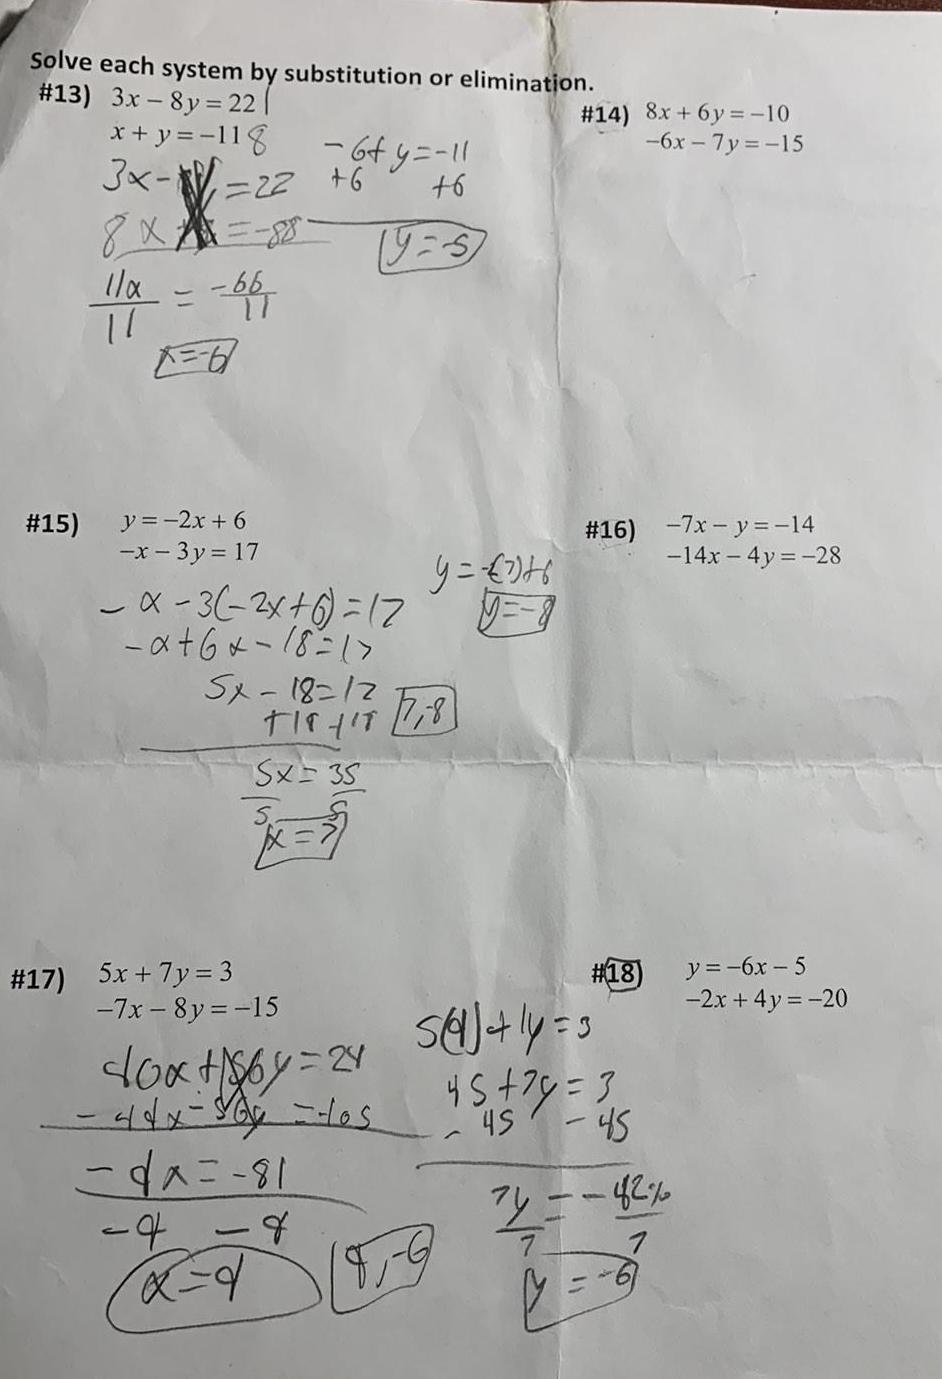 Solve each system by substitution or elimination.
#13) 3x − 8y = 22
x + y = −11 8
3x − = 22
8x = -88
11x = -66
11 11
x = -6
-6 + y = -11
+6 +6
y = -5
#14) 8x + 6y = −10
−6x − 7y = −15
#15) y = −2x + 6
−x − 3y = 17
-x - 3(-2x+6) = 17
-x + 6x - 18 = 17
5x - 18 = 17
+18 +18
5x = 35
5 5
x = 7
y = -(7)+6
y = -8
7,-8
#16) −7x − y = −14
−14x − 4y = −28
#17) 5x + 7y = 3
−7x − 8y = −15
40x + 56y = 24
-49x - 56y = -105
-9x = -81
-9 -9
x = 9
9,-6
5(9) + 7y = 3
45 + 7y = 3
- 45 - 45
7y = -42
7 7
y = -6
#18) y = −6x − 5
−2x + 4y = −20